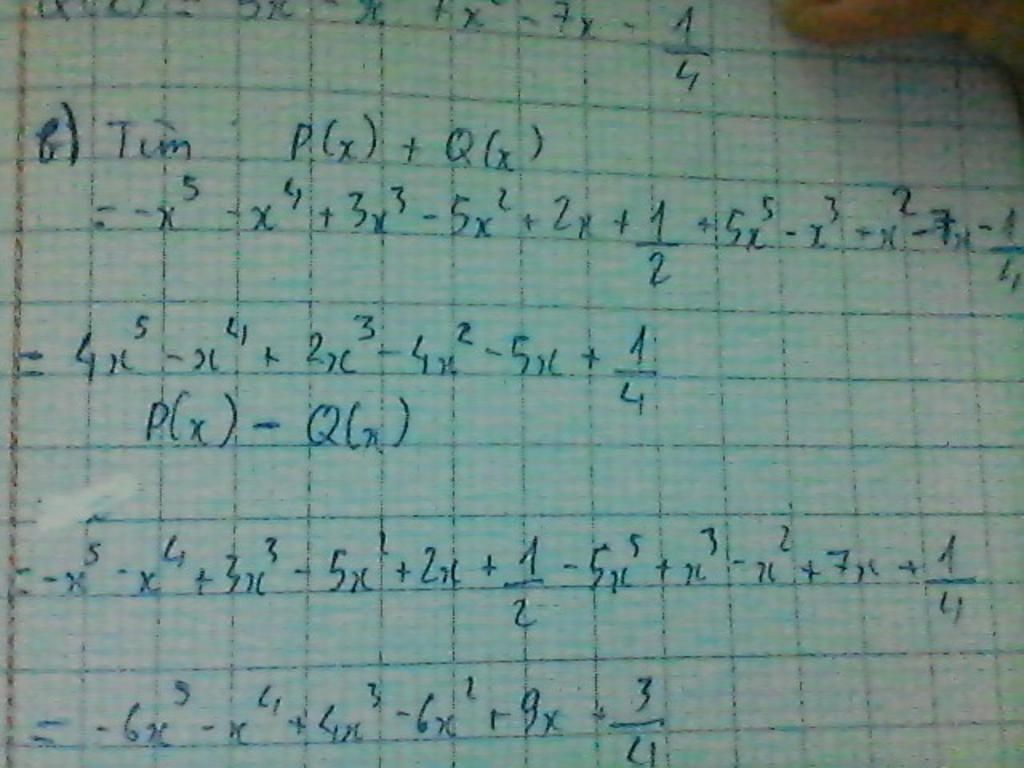 = 5x - x + x² - 7x - 1/4
b) Tìm P(x) + Q(x)
= -x⁵ - x⁴ + 3x³ - 5x² + 2x + 1/2 + 5x⁵ - x³ + x² - 7x - 1/4
= 4x⁵ - x⁴ + 2x³ - 4x² - 5x + 1/4
P(x) - Q(x)
= -x⁵ - x⁴ + 3x³ - 5x² + 2x + 1/2 - 5x⁵ + x³ - x² + 7x + 1/4
= -6x⁵ - x⁴ + 4x³ - 6x² + 9x + 3/4